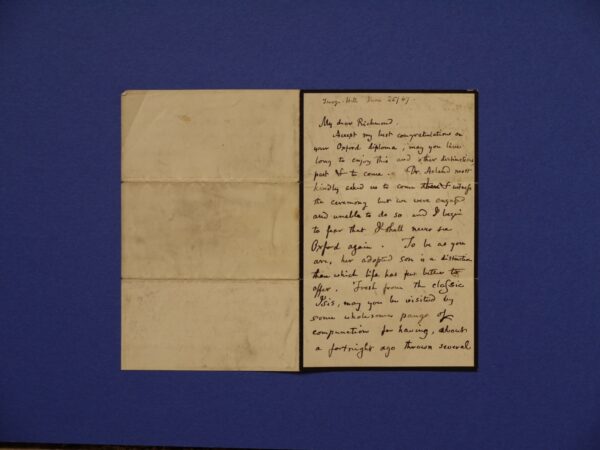 My dear Richmond.
Accept my best congratulations on
your Oxford diploma, may you live
long to enjoy this and other distinctions
past & to come. Dr. Acland most
kindly asked us to come & witness
the ceremony but we were engaged
and unable to do so and I begin
to fear that I shall never see
Oxford again. To be as you
are, her adopted son is a distinction
than which life has few better to
offer. Fresh from the classic
Isis, may you be visited by
some wholesome pangs of
compunction for having, about
a fortnight ago thrown several